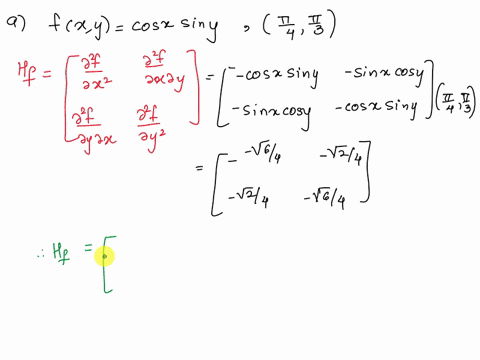 a) f(x,y) = cosx siny , (π/4, π/3)
Hf = [ ∂²f/∂x² ∂²f/∂x∂y ; ∂²f/∂y∂x ∂²f/∂y² ] = [ -cosx siny -sinx cosy ; -sinx cosy -cosx siny ] (π/4, π/3)
= [ - -√6/4 -√2/4 ; -√2/4 -√6/4 ]
∴ Hf = [